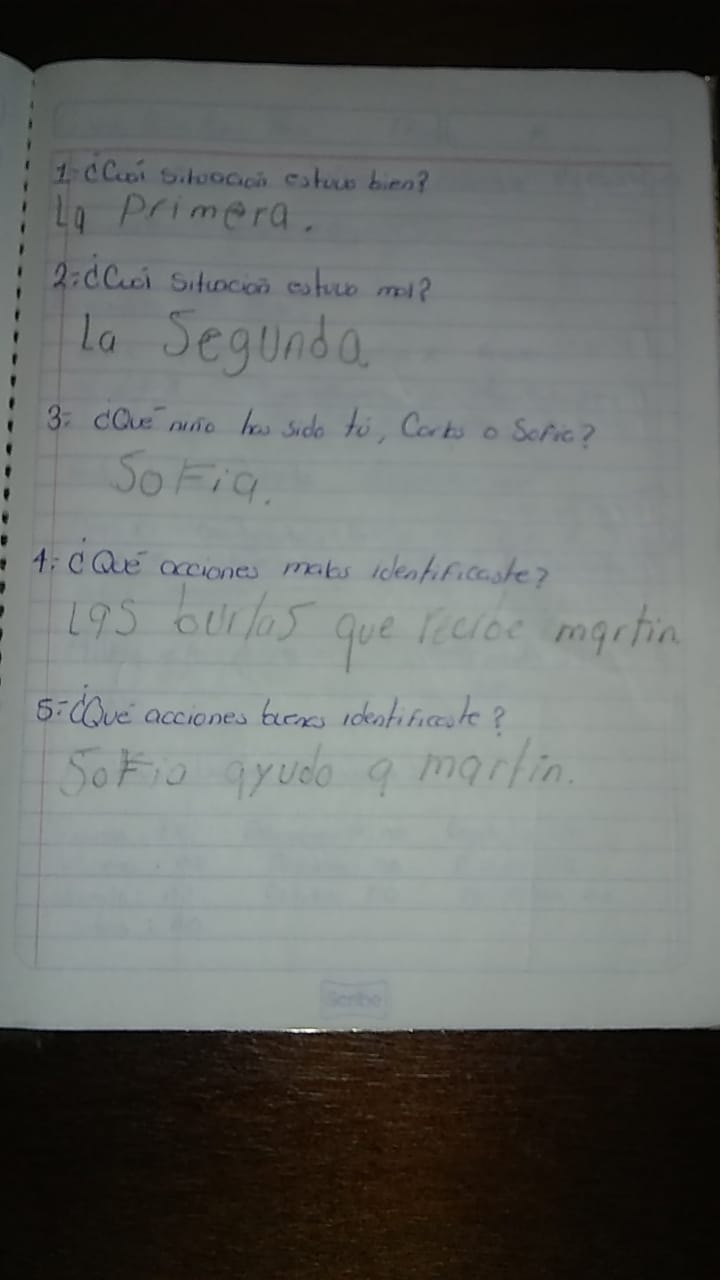 1-¿Cuál situación estuvo bien?
La Primera.
2-¿Cuál situación estuvo mal?
La Segunda
3- ¿Qué niño has sido tú, Carlos o Sofia?
SoFia.
4-¿Qué acciones malas identificaste?
las burlas que recibe martin
5-¿Qué acciones buenas identificaste?
SoFia ayudo a martin.
Scribe